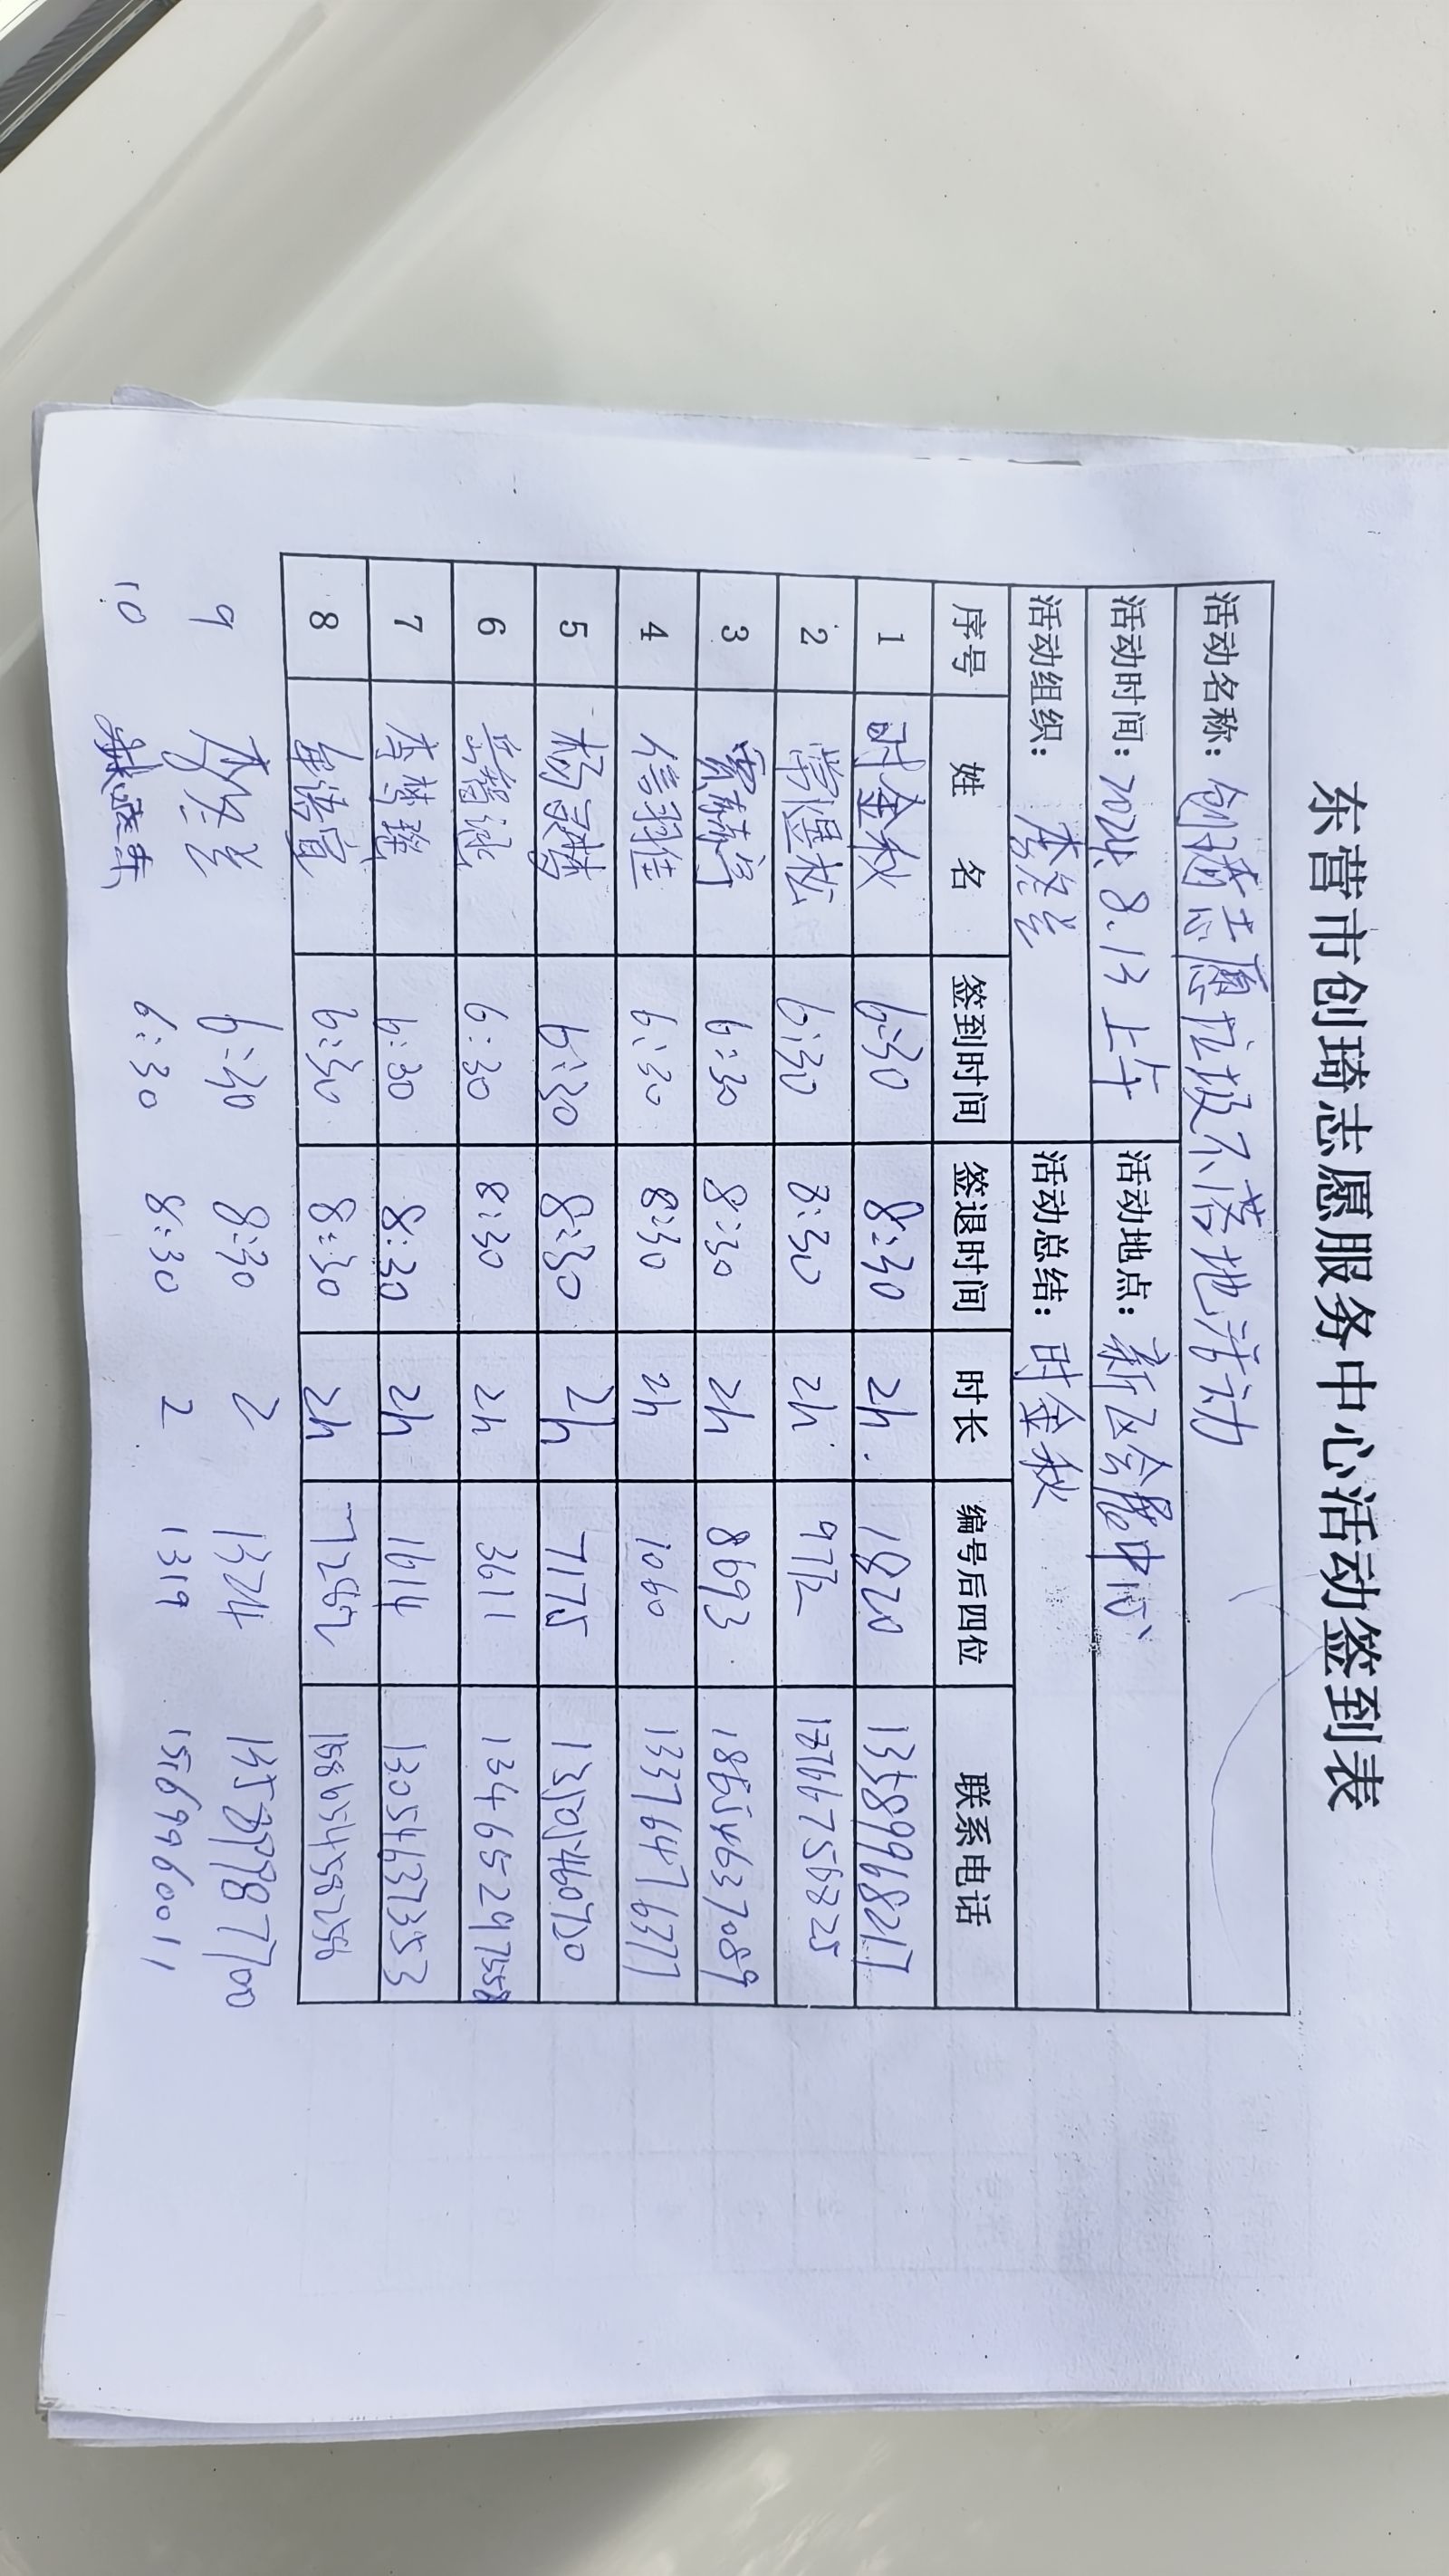 东营市创琦志愿服务中心活动签到表
活动名称：创琦志愿垃圾不落地活动
活动时间：2024.8.13上午 活动地点：新区会展中心
活动组织：李冬兰 活动总结：时金秋
序号 姓名 签到时间 签退时间 时长 编号后四位 联系电话
1 时金秋 6:30 8:30 2h. 1820 13589968217
2 常惺松 6:30 8:30 2h. 9772 17766756825
3 贾赫宇 6:30 8:30 2h 8693 18654637089
4 信羽佳 6:30 8:30 2h 1060 13376476377
5 杨灵 6:30 8:30 2h 7175
6 6:30 8:30 2h 3611
7 李梦 6:30 8:30 2h 1614 13054637353
8 6:30 8:30 2h 7262
9 李冬兰 6:30 8:30 2 1324
10 6:30 8:30 2 1319 15699960011